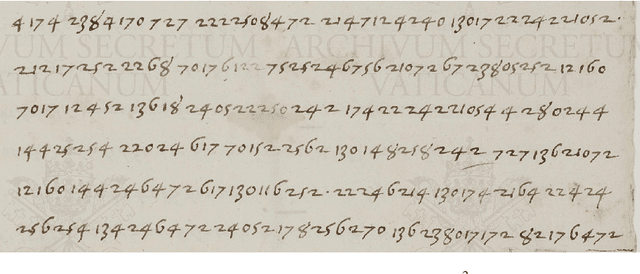 4174 2384170727 2222508472 2147124240 130172224221052.
21217252 2268 7017612275252467562107267238052521216 0
7017 12452 13618 2405222502 42 174222422105442 80244
14425254 22024617 70152 2562 130148258242 72713621072
1216014424647261713011 6252. 222462 14 130174216422424
256254 1342464722405217825627 0 13623801717 2 82176472